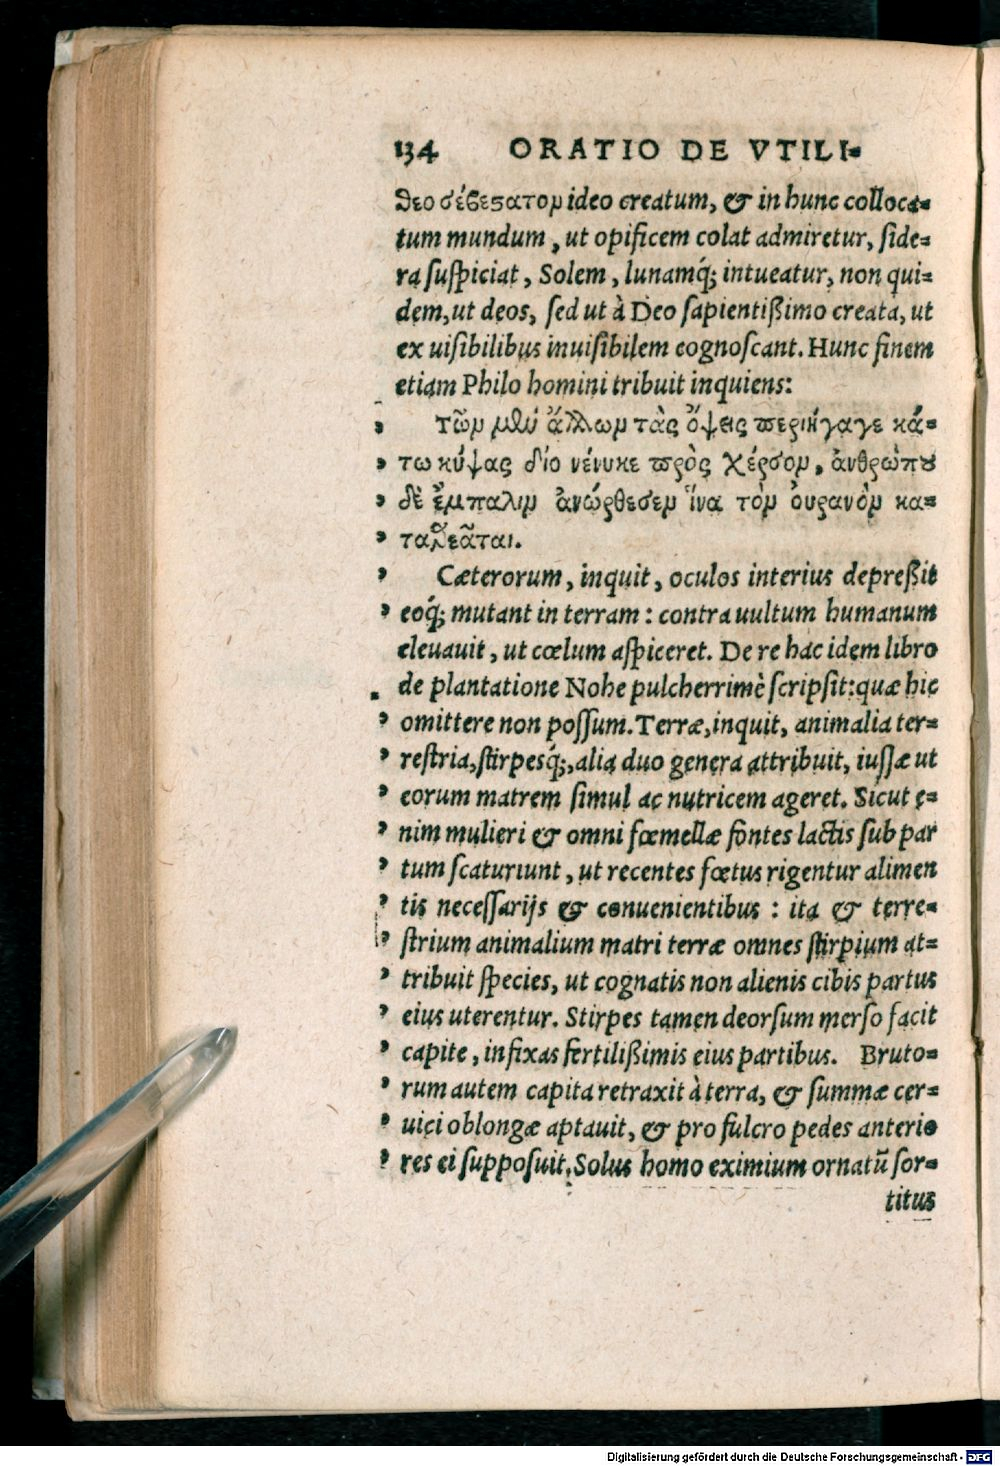 134 ORATIO DE VTILI-
θεοσέβεϛατομ ideo creatum, & in hunc colloca-
tum mundum, ut opificem colat admiretur, ſide-
ra ſuſpiciat, Solem, lunamq́; intueatur, non qui-
dem, ut deos, ſed ut à Deo ſapientißimo creata, ut
ex uiſibilibus inuiſibilem cognoſcant. Hunc finem
etiam Philo homini tribuit inquiens:
Τῶμ μὲν ἄλλωμ τὰς ὄψεις περιήγαγε κά-
τω κύψας διο νένυκε πρὸς χέρσομ, ἀνθρώπȣ
δὲ ἔμπαλιμ ἀνώρθεσεμ ἵνα τὸμ ὀυρανὸμ κα-
ταθεᾶται.
Cæterorum, inquit, oculos interius depreßit
eoq́; mutant in terram: contra uultum humanum
eleuauit, ut cœlum aſpiceret. De re hac idem libro
de plantatione Nohe pulcherrimè ſcripſit: quæ hic
omittere non poſſum. Terræ, inquit, animalia ter-
reſtria, ſtirpesq́;, alia duo genera attribuit, iuſſæ ut
eorum matrem ſimul ac nutricem ageret. Sicut e-
nim mulieri & omni fœmellæ fontes lactis ſub par
tum ſcaturiunt, ut recentes fœtus rigentur alimen
tis neceſſarijs & conuenientibus: ita & terre-
ſtrium animalium matri terræ omnes ſtirpium at-
tribuit ſpecies, ut cognatis non alienis cibis partus
eius uterentur. Stirpes tamen deorſum merſo facit
capite, infixas fertilißimis eius partibus. Bruto-
rum autem capita retraxit à terra, & ſummæ cer-
uici oblongæ aptauit, & pro fulcro pedes anterio
res ei ſuppoſuit. Solus homo eximium ornatū ſor-
titus
Digitalisierung gefördert durch die Deutsche Forschungsgemeinschaft - DFG